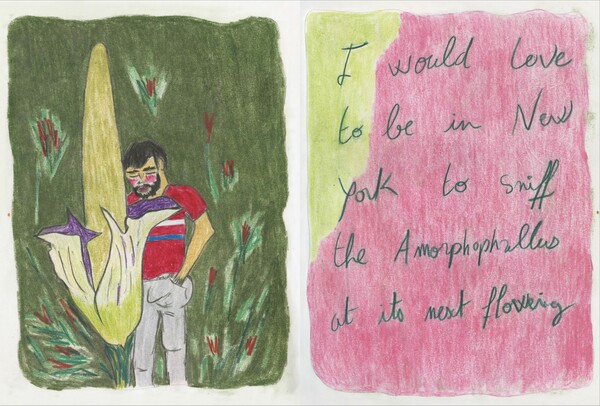 I would love
to be in New
York to sniff
the Amorphophallus
at its next flowering